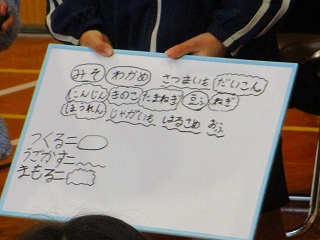 みそ わかめ さつまいも だいこん
にんじん きのこ たまねぎ 豆ふ ねぎ
ほうれん じゃがいも はるさめ おふ
つくる=
うごかす=
まもる=